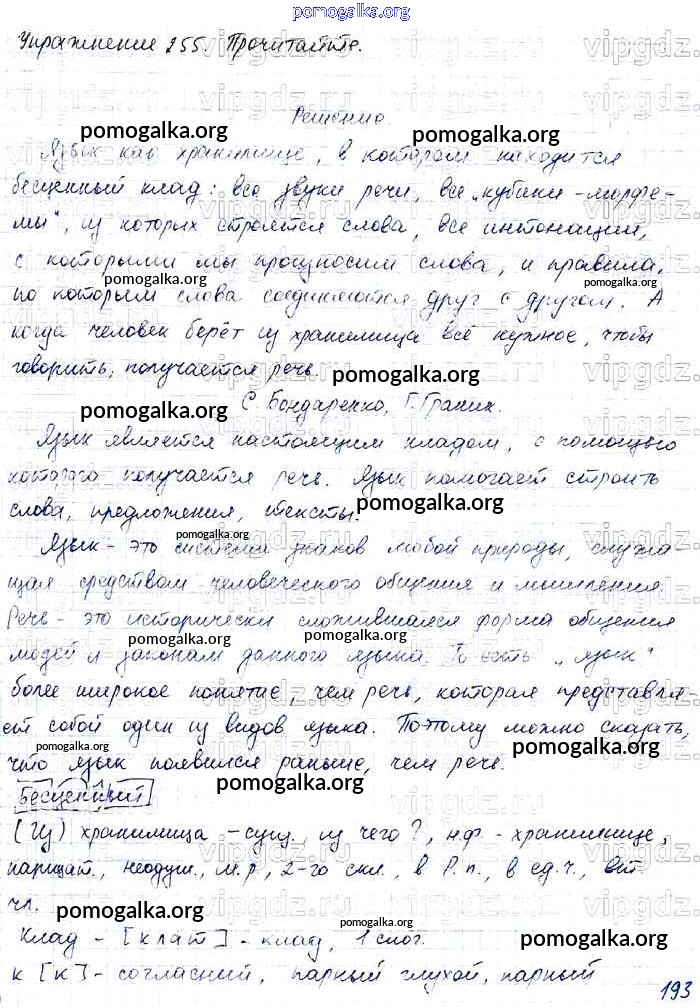 pomogalka.org
Упражнение 255. Прочитайте.
Решение.
Язык как хранилище, в котором находится
бесценный клад: все звуки речи, все „кубики-морфе-
мы“, из которых строятся слова, все интонации,
с которыми мы произносим слова, и правила,
по которым слова соединяются друг с другом. А
когда человек берёт из хранилища всё нужное, чтобы
говорить, получается речь.
С. Бондаренко, Г. Граник.
Язык является настоящим кладом, с помощью
которого получается речь. Язык помогает строить
слова, предложения, тексты.
Язык - это система знаков любой природы, служа
щая средством человеческого общения и мышления.
Речь - это исторически сложившаяся форма общения
людей законам данного языка. То есть „язык“
более широкое понятие, чем речь, которая представля-
ет собой один из видов языка. Поэтому можно сказать,
что язык появился раньше, чем речь.
Бесценный
(Из) хранилища - сущ., из чего?, н.ф. - хранилище,
нарицат., неодуш., м.р., 2-го скл., в Р.п., в ед.ч.,
чл.
Клад - [клат] - клад, 1 слог.
к [к] - согласный, парный глухой, парный
193